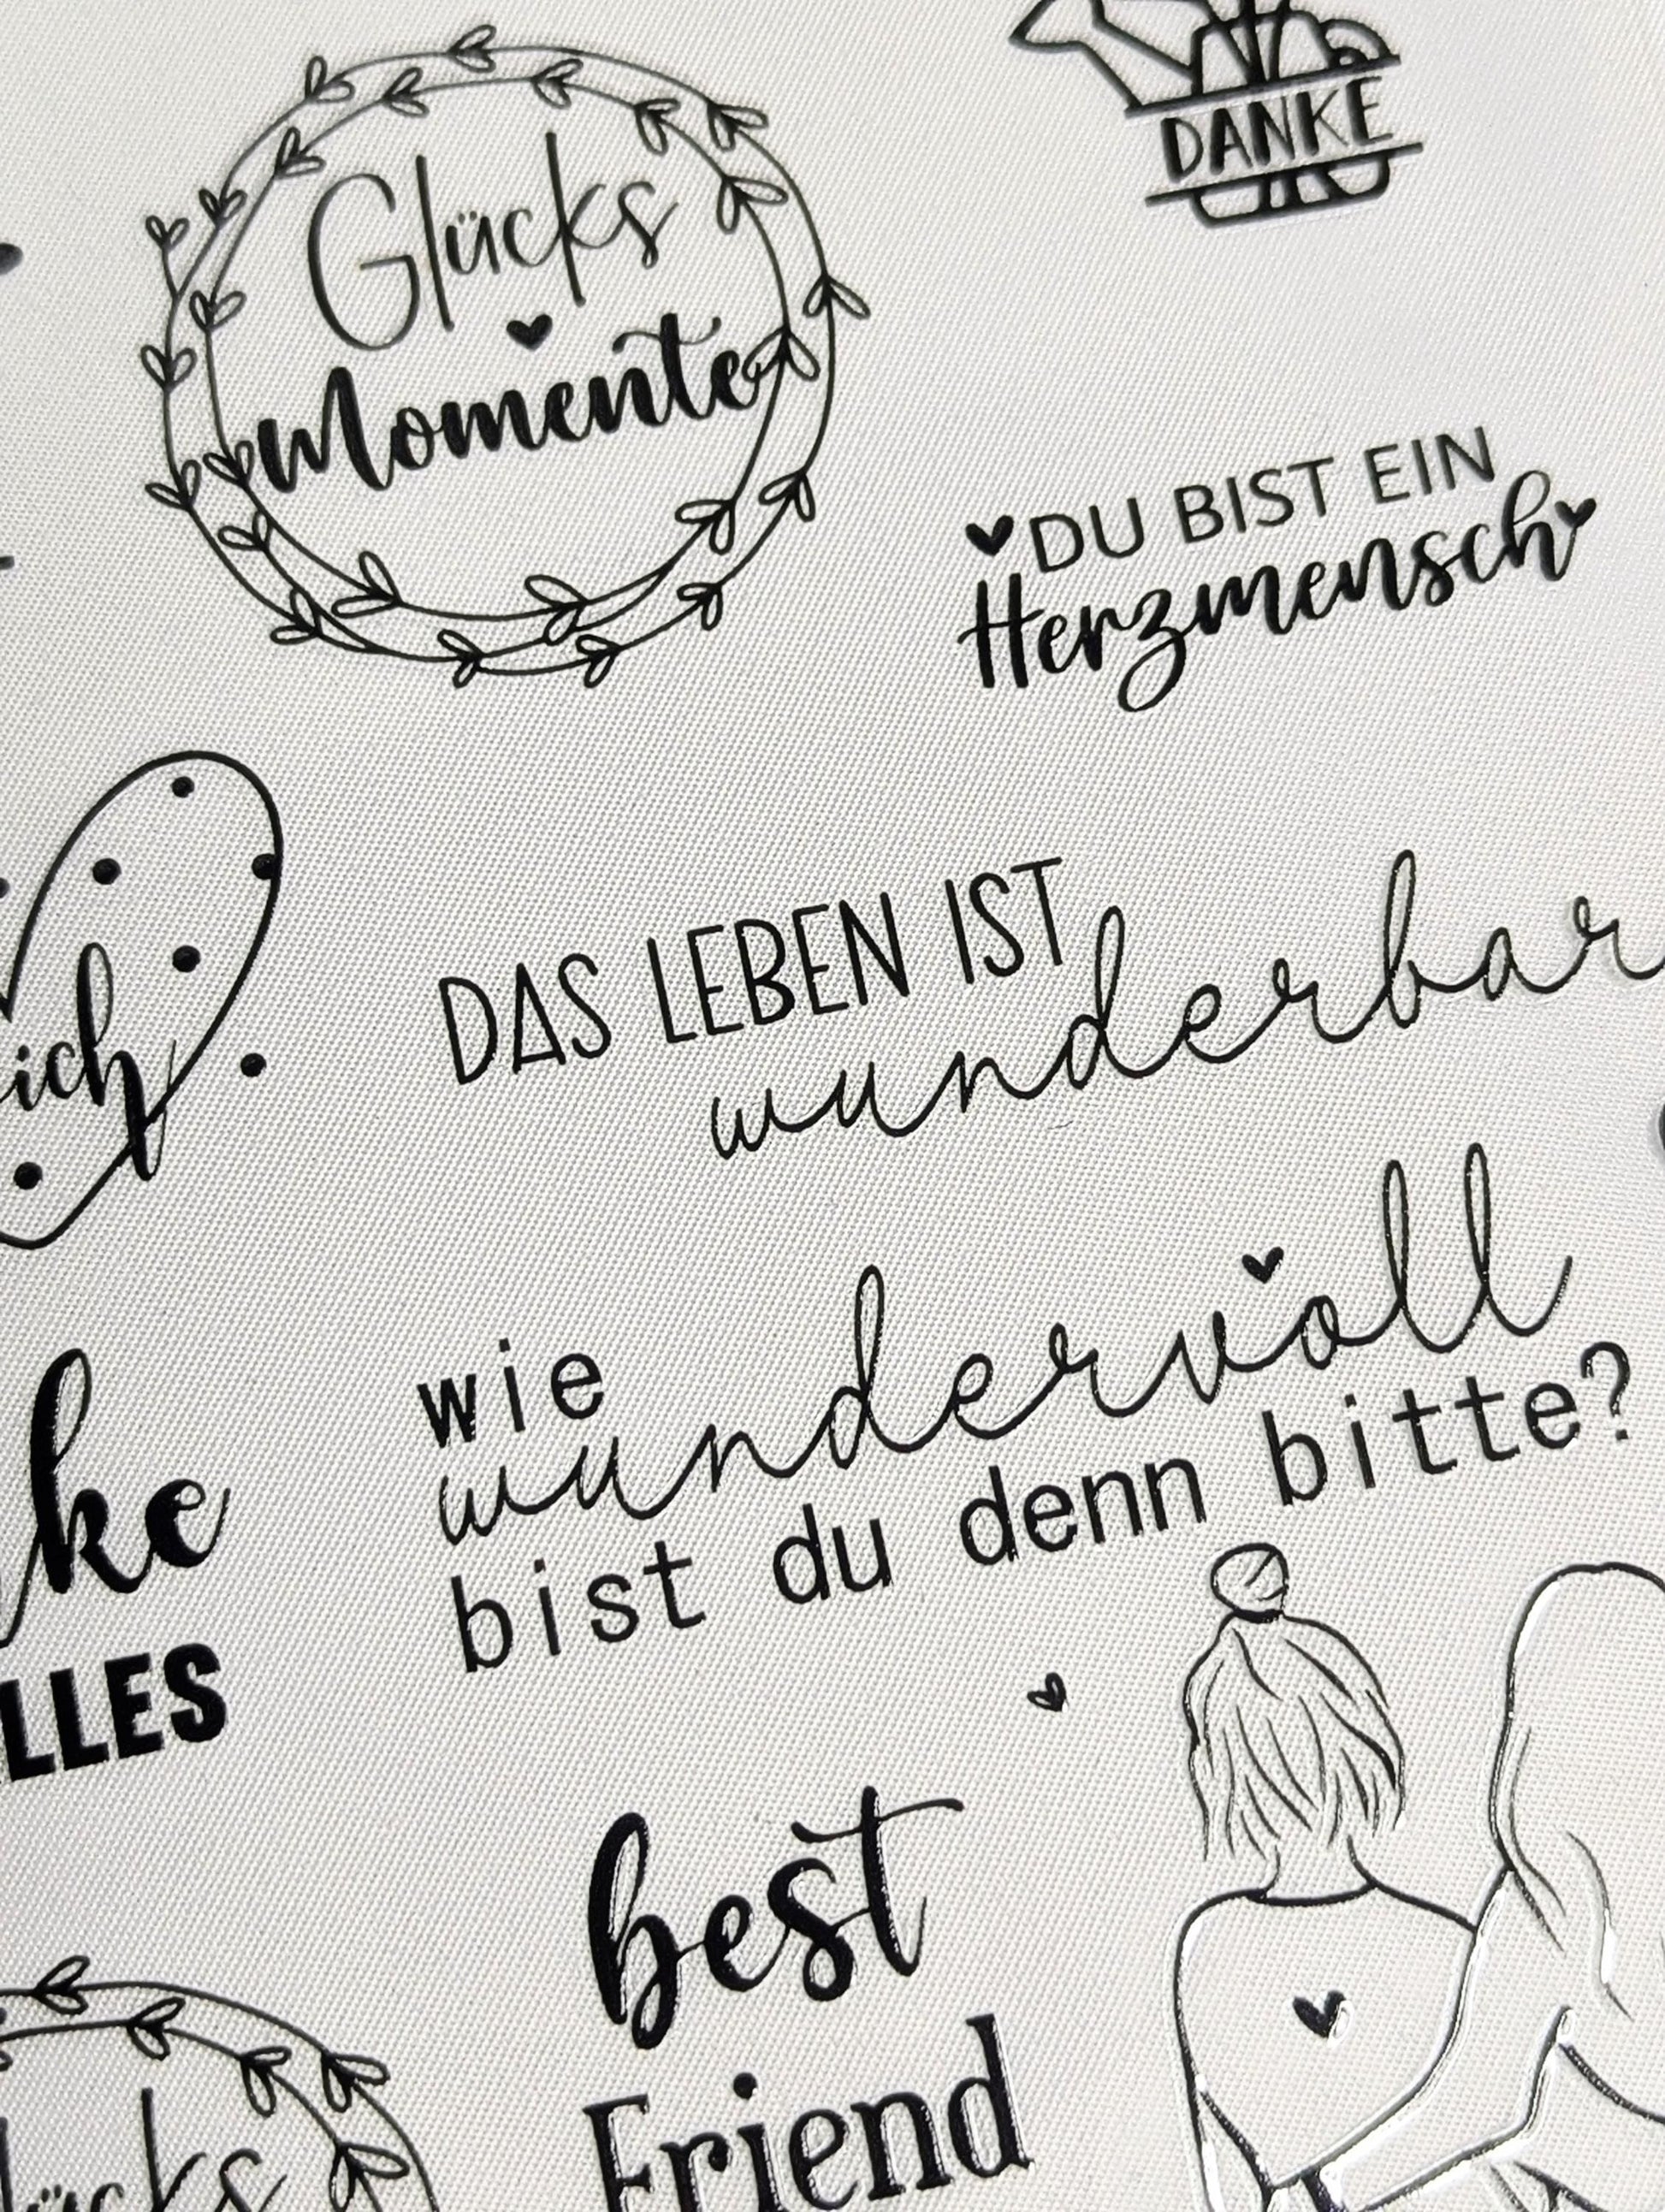 DANKE
Glücks
Momente
DU BIST EIN
Herzmensch
DAS LEBEN IST
wunderbar
ich
wie
wundervoll
bist du denn bitte?
ke
LLES
best
Friend
lücks